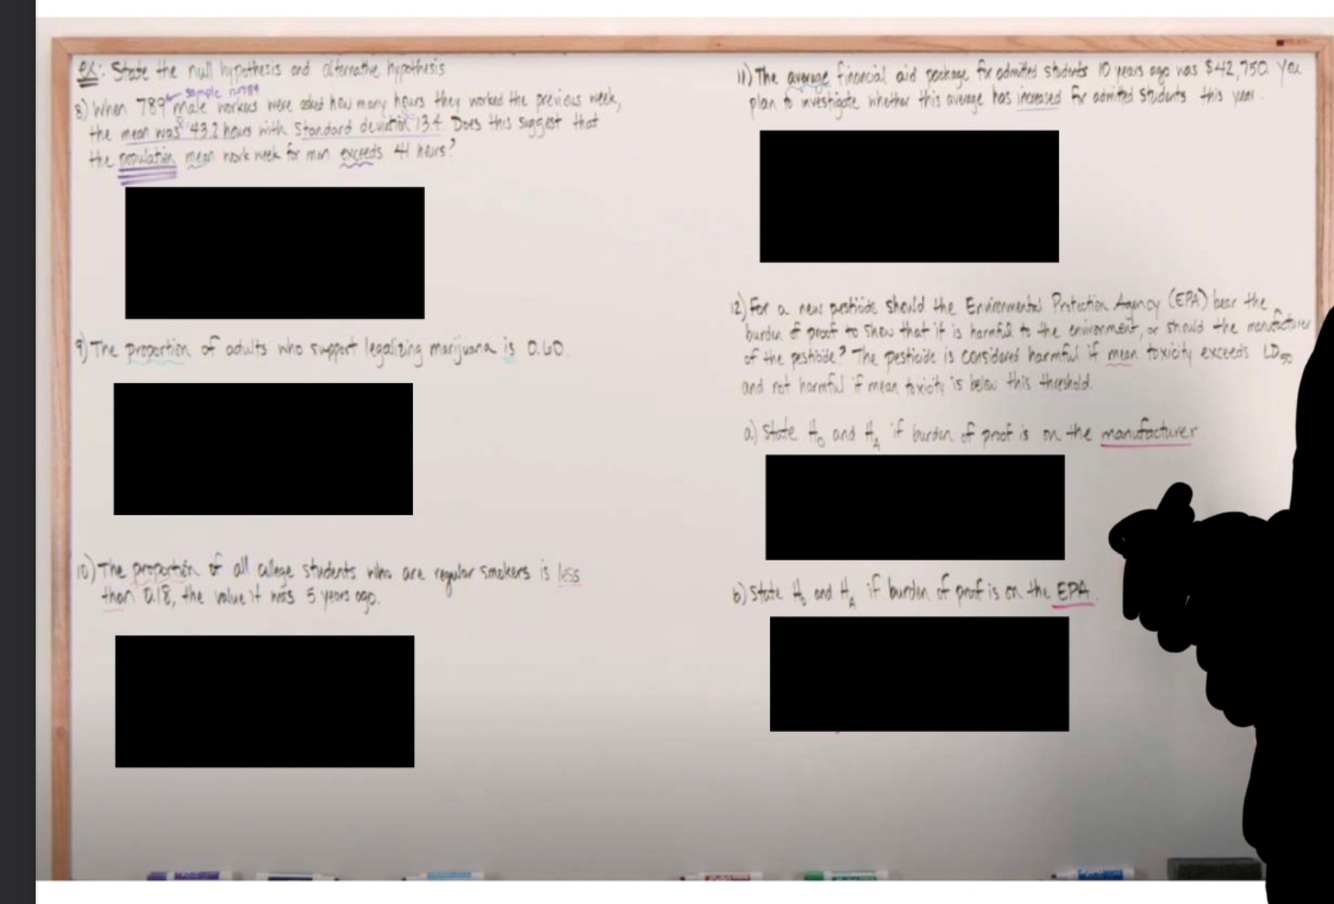 Ex: State the null hypothesis and alternative hypothesis
sample n=789
8) When 789 male workers were asked how many hours they worked the previous week,
the mean was 43.2 hours with standard deviation 13.4. Does this suggest that
the population mean work week for men exceeds 41 hours?
9) The proportion of adults who support legalizing marijuana is 0.60.
10) The proportion of all college students who are regular smokers is less
than 0.18, the value it was 5 years ago.
11) The average financial aid package for admitted students 10 years ago was $42,750. You
plan to investigate whether this average has increased for admitted students this year.
12) For a new pesticide should the Environmental Protection Agency (EPA) bear the
burden of proof to show that it is harmful to the environment, or should the manufacturer
of the pesticide? The pesticide is considered harmful if mean toxicity exceeds LD50
and not harmful if mean toxicity is below this threshold.
a) State H0 and HA if burden of proof is on the manufacturer
b) State H0 and HA if burden of proof is on the EPA.